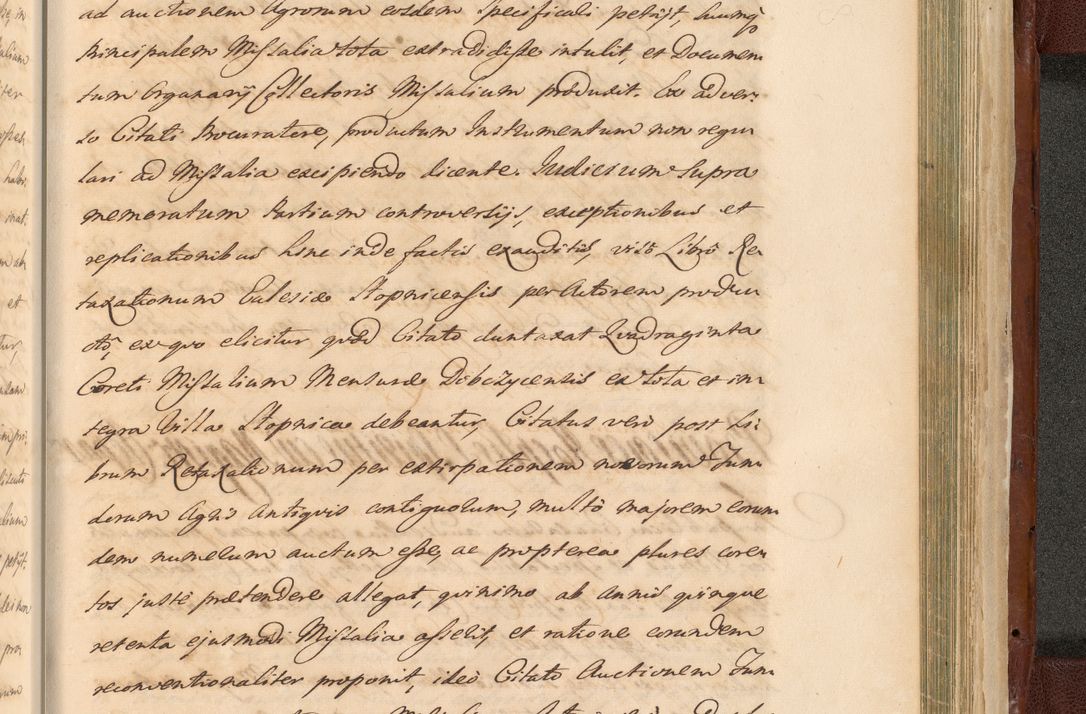 ad auctionem Agrorum eosdem specificali petijt, Suumq̃
Principalem Missalia tota extradidisse intulit, et Documen
tum Organarij Collectoris Missalium produxit. Ex adver:
so Citati Procuratore, productum Instrumentum non regu
lari ad Missalia excipiendo dicente. Judicium Supra
memoratum Partium controversijs, exceptionibus et
replicationibus hinc inde factis exauditis, visô Librô Re
taxationum Eclesiæ Stopnicensis per Actorem produ
ctô, ex quo elicitur quôd Citatô duntaxat Quadraginta
Coreti Missalium Mensuræ Dobczycensis ex tota et in
tegra Villa Stopnica debeantur, Citatus verò post Li:
brum Retaxationum per extirpationem novorum Fun
dorum Agris Antiquis contiguorum, multô majorem eorun
dem numerum auctum esse, ac propterea plures core
tos justè prætendere allegat, quinimo ab annis quinque
retenta ejusmodi Missalia asserit, et ratione eorundem
reconventionaliter proponit, ideò Citato Auctionem Fun